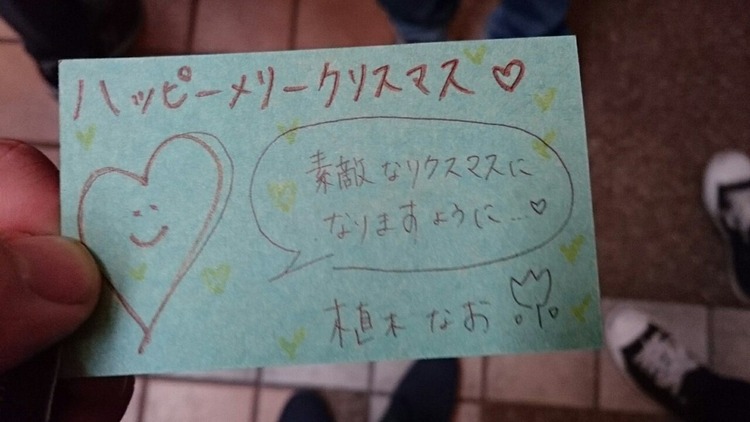 ハッピーメリークリスマス♡
素敵なリクスマスに
なりますように…♡
植木なお